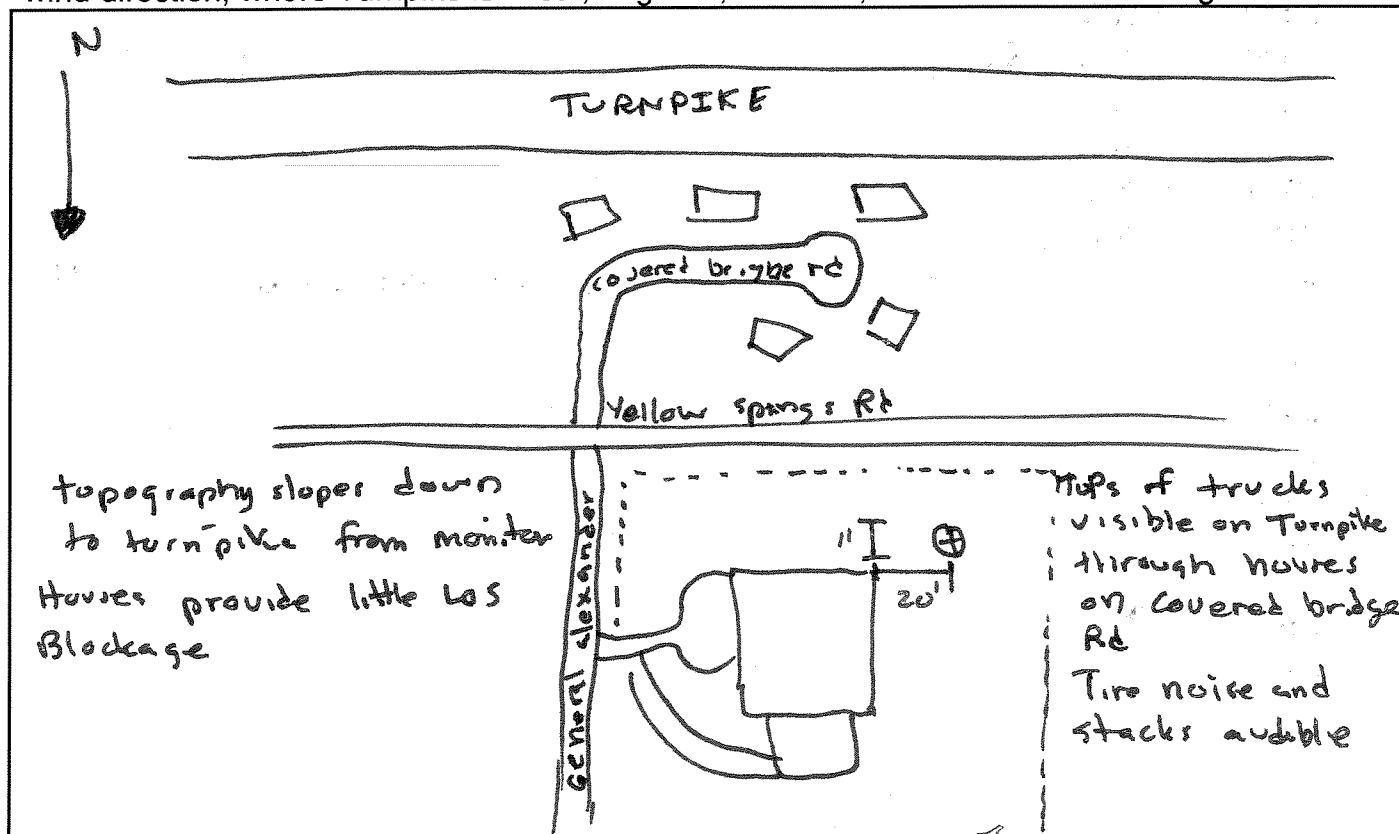 N
TURNPIKE
covered brigbe rd
Yellow springs Rd
General alexander
topography slopes down
to turnpike from monitor
Houses provide little LOS
Blockage
11
20'
Tops of trucks
visible on Turnpike
through houses
on covered bridge
Rd
Tire noise and
stacks audible